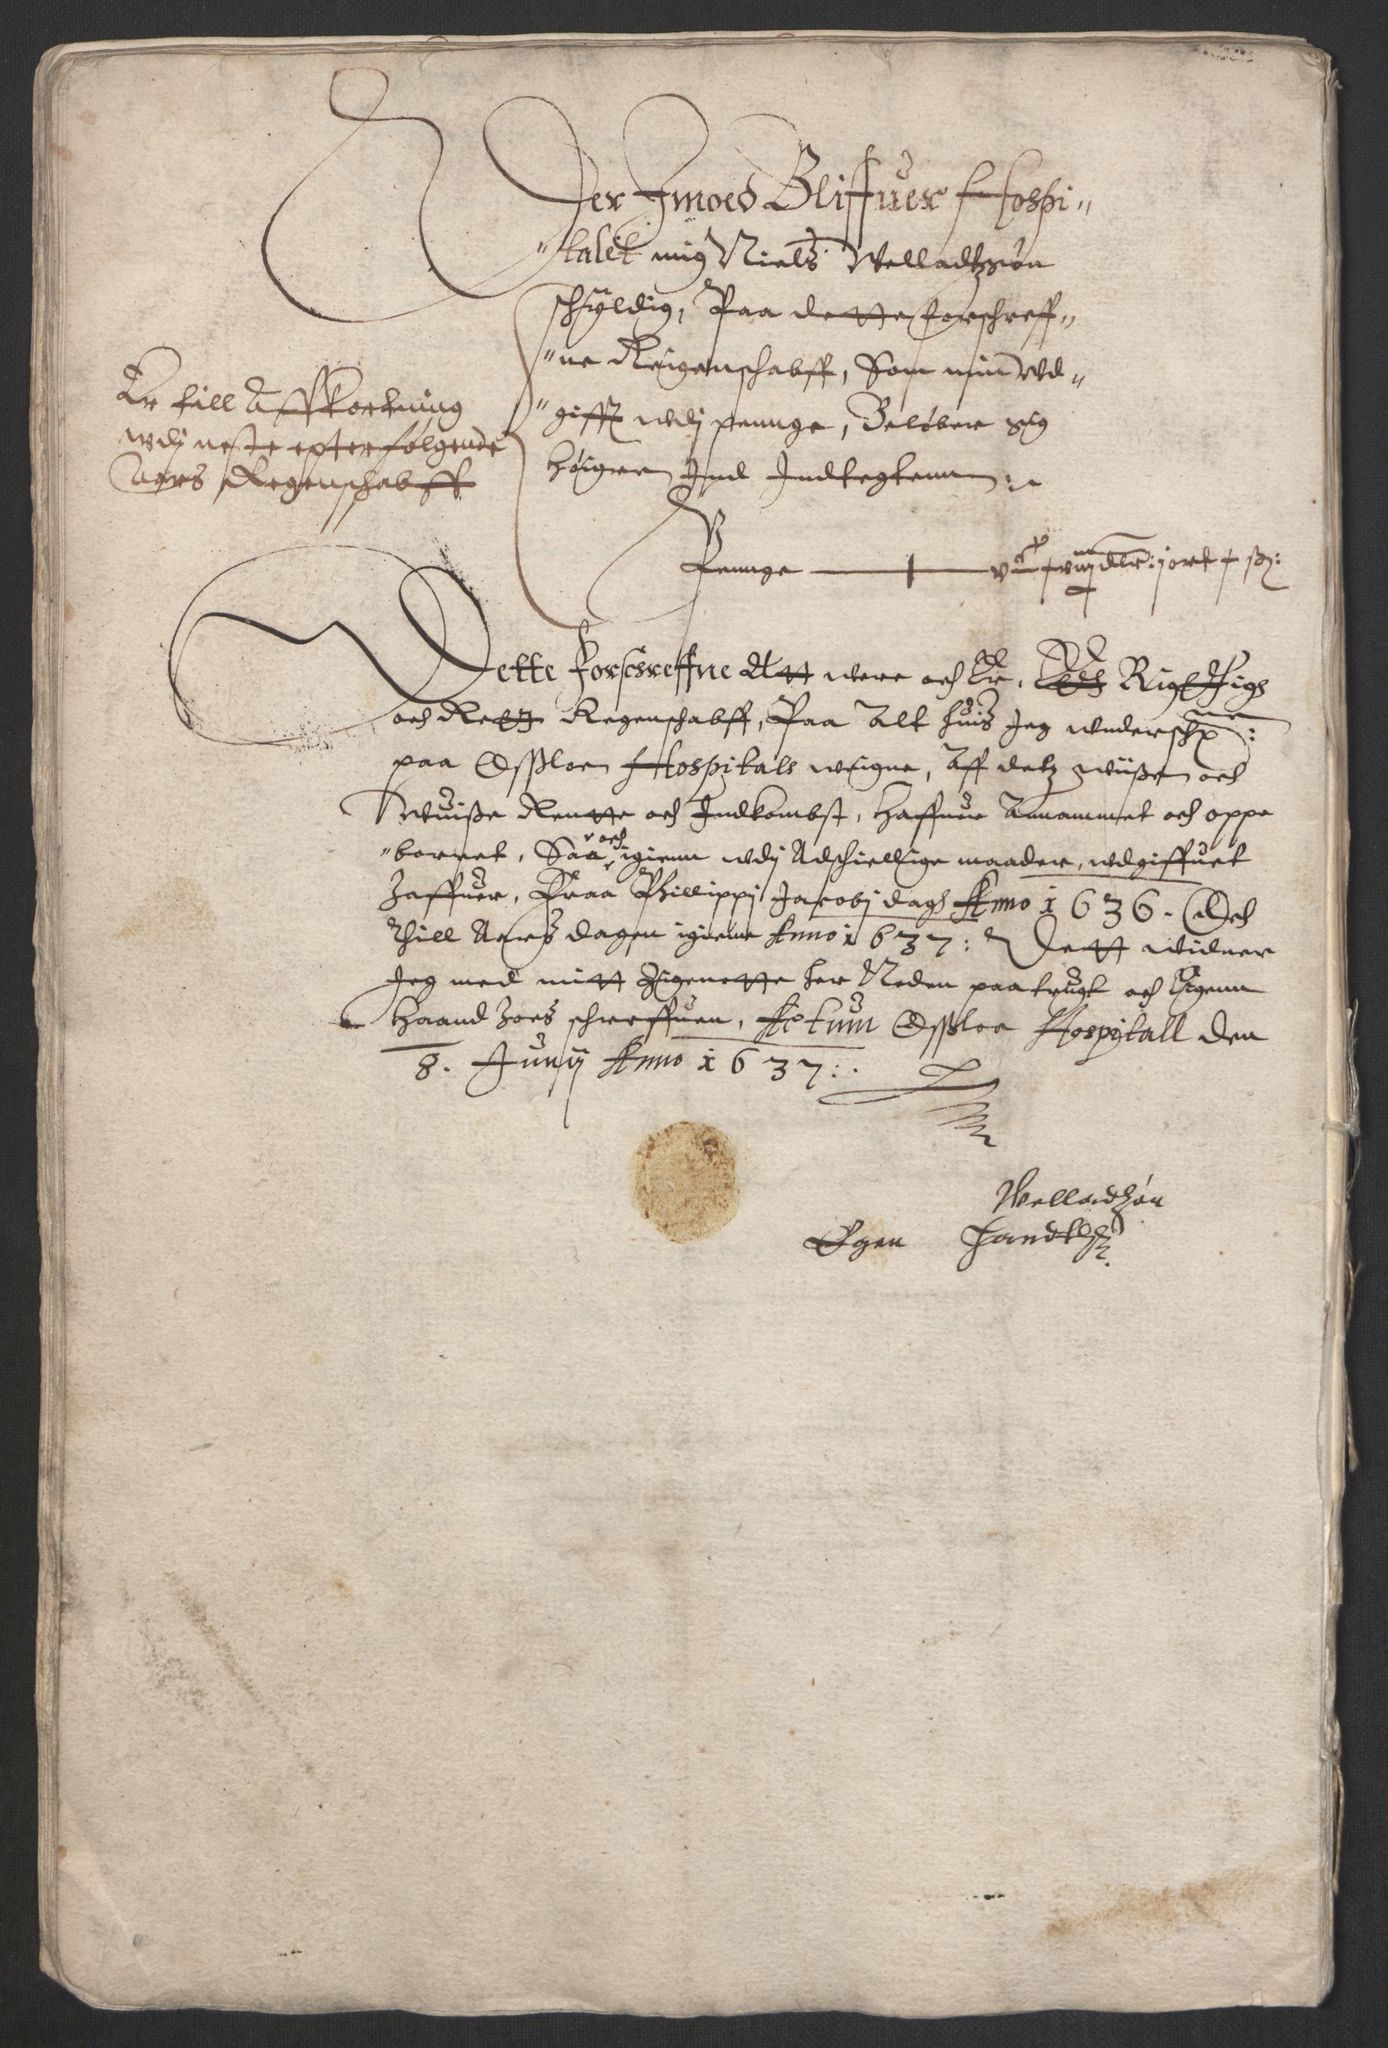 Der Jmoed Bliffuer Hospi¬
"talet mig Niels Welladtzøn
schÿldig, Paa dette forschreff¬
"ne Reigenschabff, Som min wd¬
"gifft wdj penge, Beløber sig
høigre Ind Indtegtenn:
Er till Affkortning
wdj neste epterfølgende
Aars Regenschabff
Penge
Dette forscreffne Att were och Er, Rigtigh
och Rett Regenschabff, Paa Alt huis Jeg wnderschr:
paa Opsloe Hospitals weigne, Aff detz wiisse och
Wuisse Rentte och Indkombst, haffuer Annammet och oppe
"borret, Saa och igienn wdj Adschiellige maader, wdgiffuet
haffuer, Fraa Phillippj Jacobj dagh Anno 1636. Och
Thill Aars dagen igienn Anno 1637: Dett widner
Jeg med mitt Zignette her Neden paatrugt och Eigenn
Haand hoes schreffuen, Actum Opsloe Hospitall den
8. Junij Anno 1637:.
Welladtzøn
Egen Handt